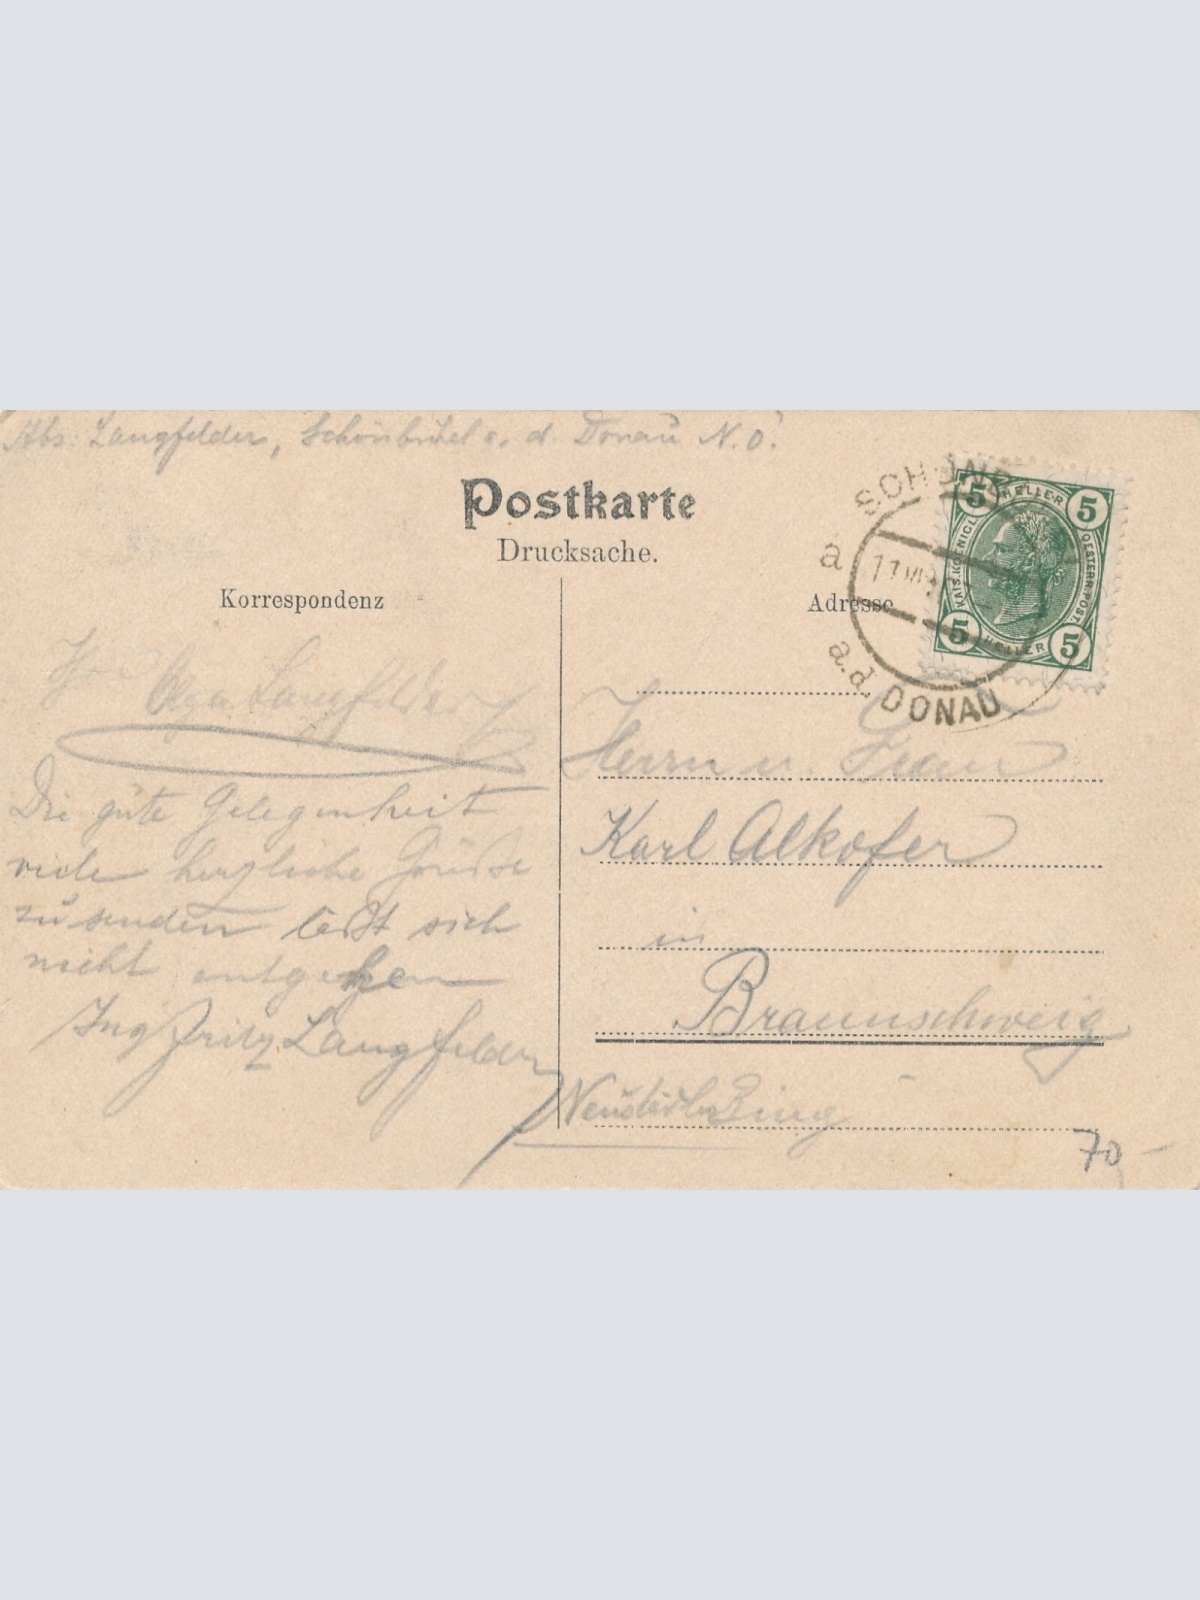 Abs: Langfelder, Schönbühel a. d. Donau N. Ö.
Postkarte
Drucksache.
Korrespondenz
Adresse
SCHÖNB
a
11 VII
a.d. DONAU
5 HELLER 5
KAIS. KOENIGL. OESTERR. POST.
5 HELLER 5
Olga Langfelder
Die gute Gelegenheit
viele herzliche Grüße
zu senden läßt sich
nicht entgehen
Ing Fritz Langfelder
Herrn u. Frau
Karl Alkofer
in
Braunschweig
70 –